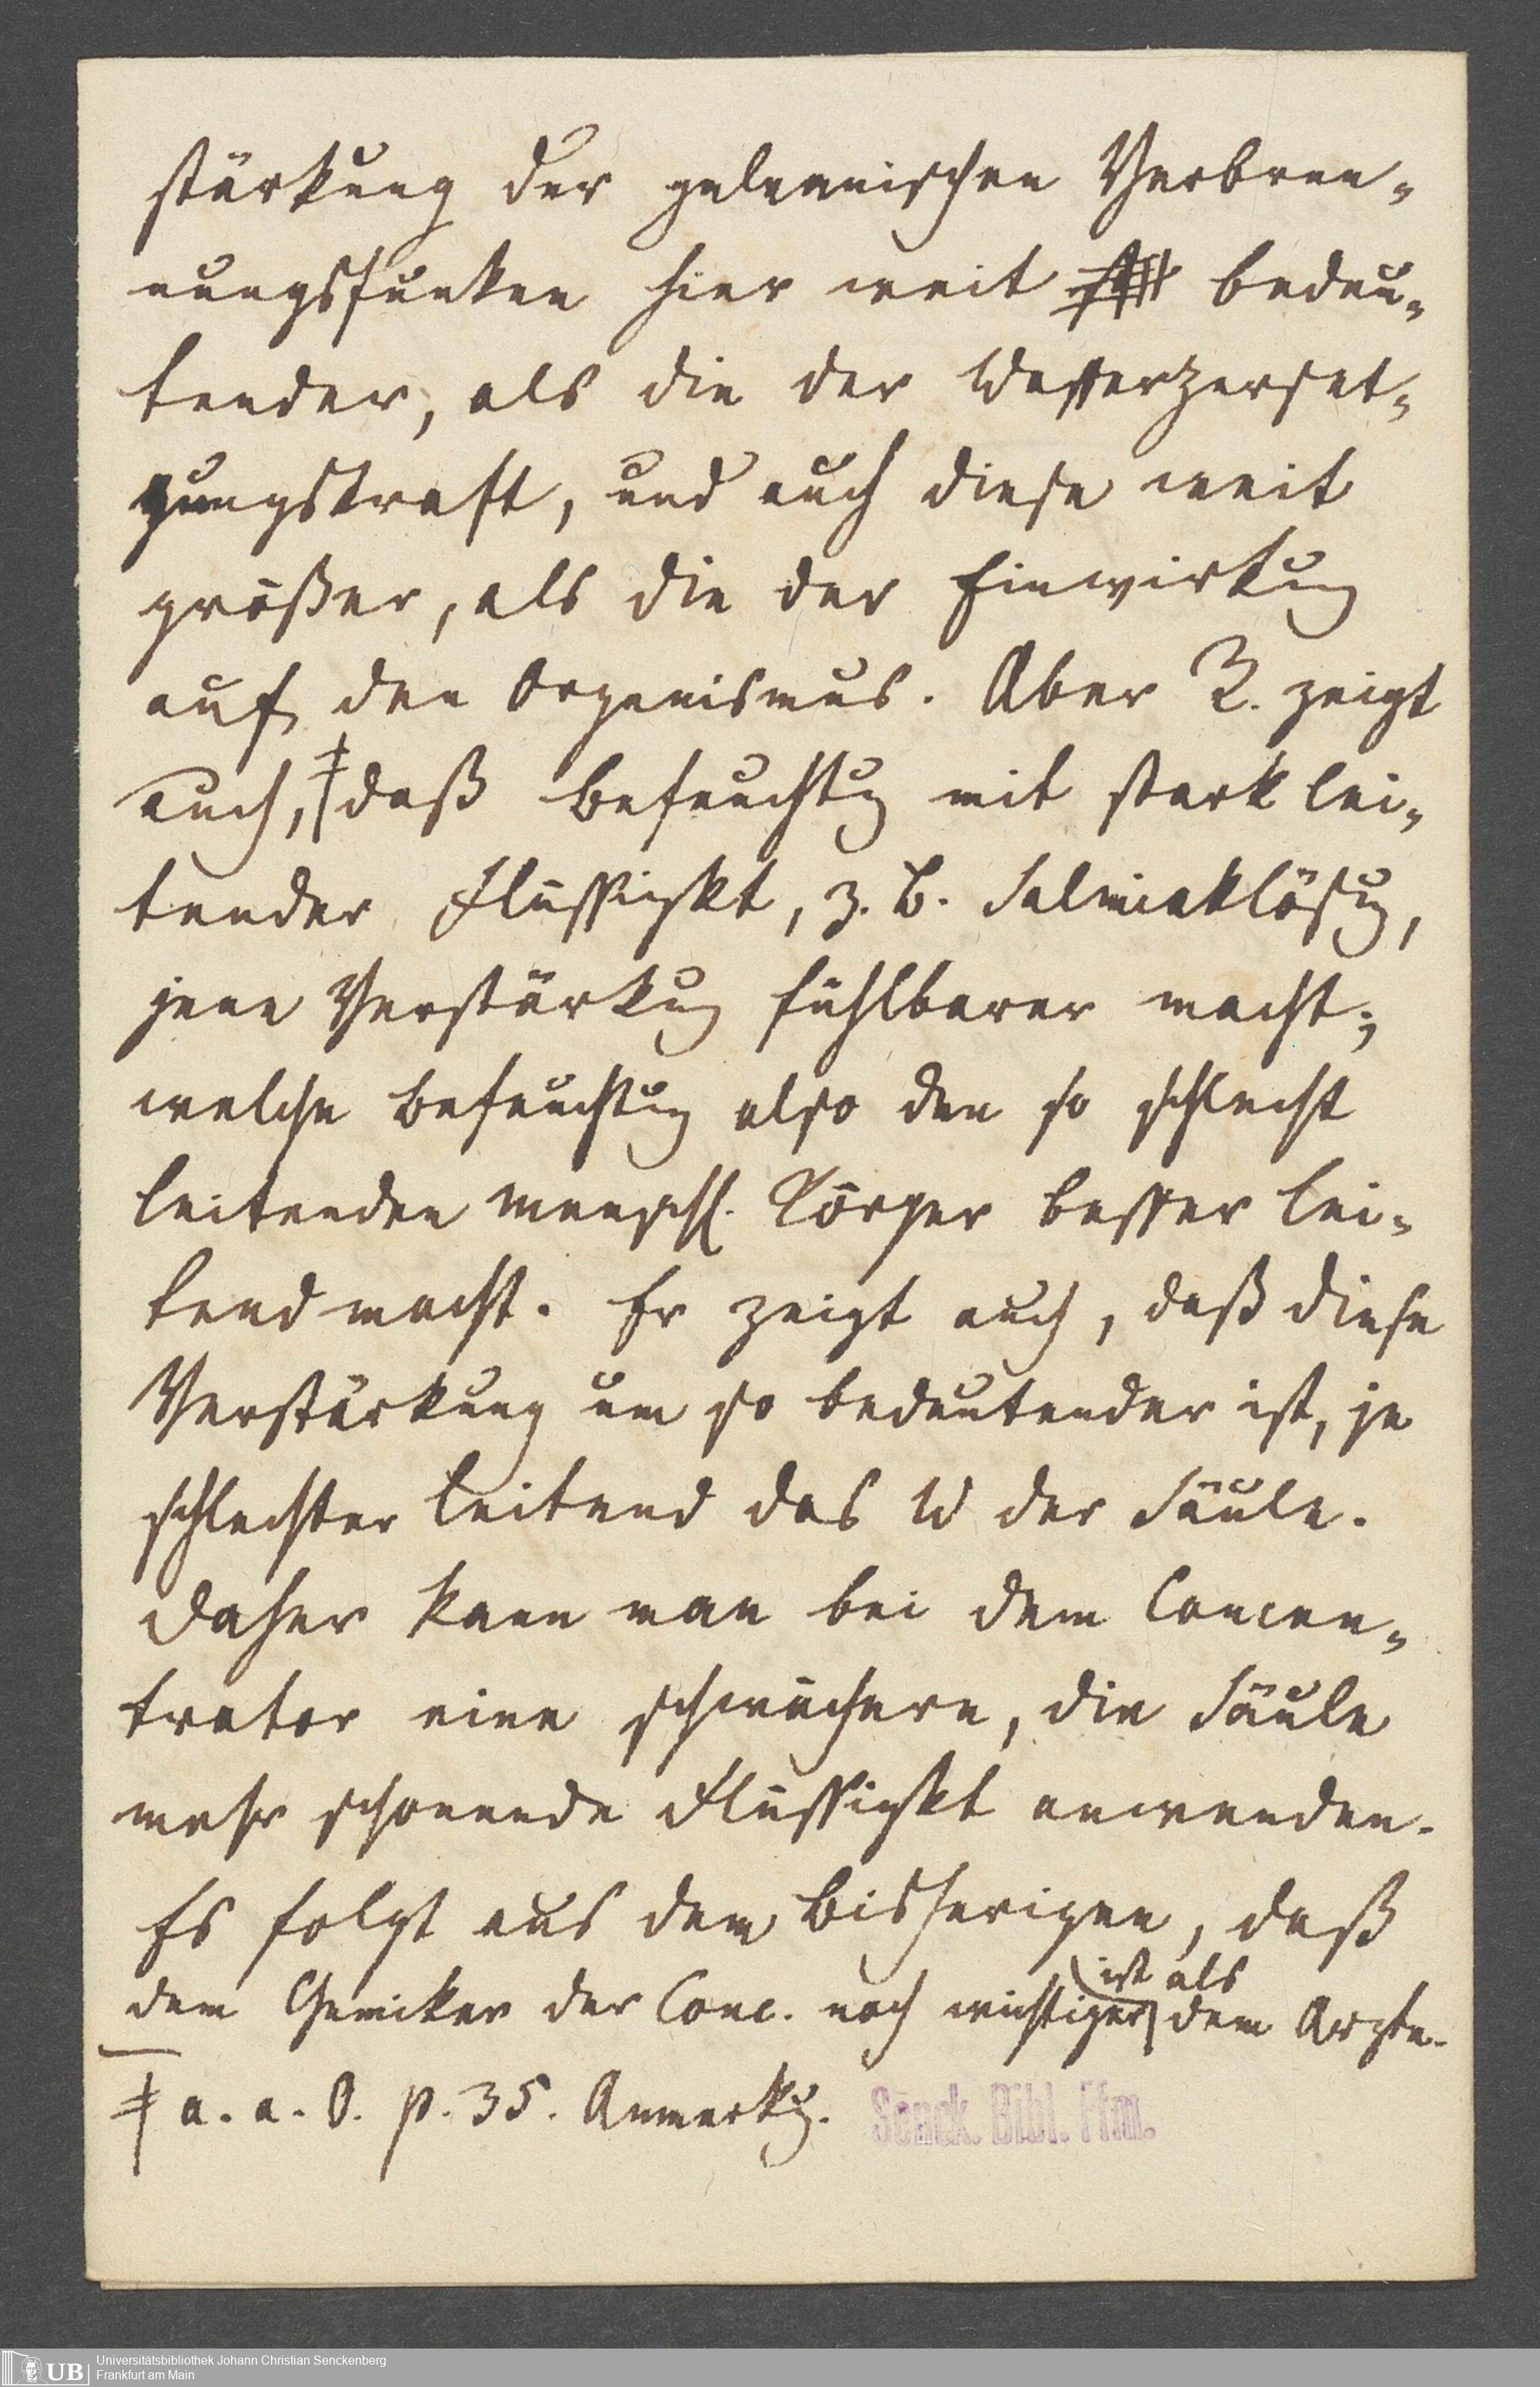 stärkung der galvanischen Verbren-
nungsfunken hier weit bedeu-
tender, als die der Wasserzerset-
zungskraft, und auch diese weit
größer, als die der Einwirkung
auf den Organismus. Aber R. zeigt
auch, ǂ daß Befeuchtg mit stark lei-
tender Flüssigkt, z. B. Salmiaklösug,
jene Verstärkug fühlbarer macht;
welche Befeuchtug also den so schlecht
leitenden menschl. Körper besser lei-
tend macht. Er zeigt auch, daß diese
Verstärkung um so bedeutender ist, je
schlechter leitend das W der Säule.
Daher kann man bei dem Concen-
trator eine schwächere, die Säule
mehr schonende Flüssigkt anwenden.
Es folgt aus dem Bisherigen, daß
ist als
dem Chemiker der Conc. noch wichtiger dem Arzte.
ǂ a. a. O. p. 35. Anmerkg.
Senck. Bibl. Ffm.
UB
Universitätsbibliothek Johann Christian Senckenberg
Frankfurt am Main